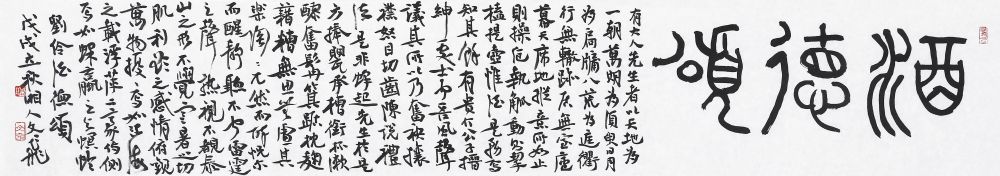 酒德頌
有大人先生者以天地為
一朝萬期為須臾日月
為扃牖八荒為庭衢
行無轍跡居無室廬
幕天席地縱意所如止
則操卮執觚動則挈
榼提壺惟酒是務焉
知其餘有貴介公子搢
紳處士聞吾風聲
議其所以乃奮袂攘
襟怒目切齒陳說禮
法是非鋒起先生於是
方捧甖承槽銜杯漱
醪奮髯箕踞枕麴
藉糟無思無慮其
樂陶陶兀然而醉恍
而醒靜聽不聞雷霆
之聲熟視不覩泰
山之形不覺寒暑之切
肌利欲之感情俯觀
萬物擾擾焉如江漢
之載浮萍二豪侍側
焉如蜾蠃之與螟蛉
劉伶酒德頌
戊戌立秋湘人文飛